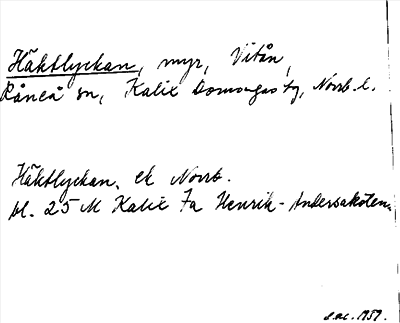 Häktlyckan, myr, Vitån,
Råneå sn, Kalix Domsagas tg, Norrb. l.
Häktlyckan. ek Norrb.
bl. 25 M Kalix Fa Henrik-Andersaköten.
1959.